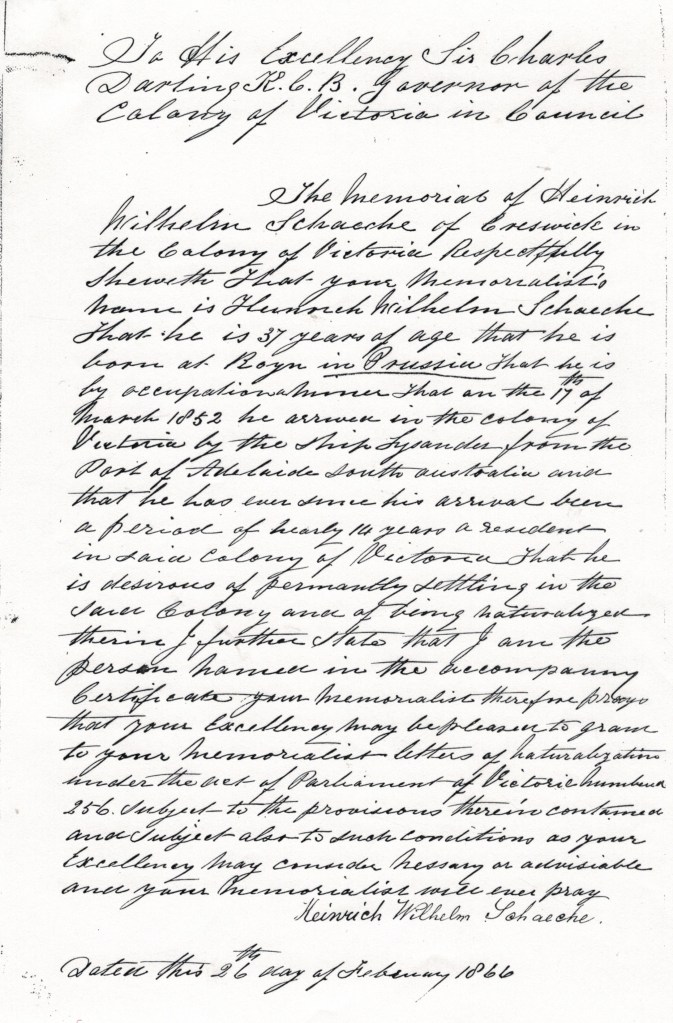 To His Excellency Sir Charles
Darling K.C.B. Governor of the
Colony of Victoria in Council
The Memorial of Heinrich
Wilhelm Schaeche of Creswick in
the Colony of Victoria Respectfully
Sheweth That your Memorialist's
name is Heinrich Wilhelm Schaeche
That he is 37 years of age that he is
born at in Prussia That he is
by occupation a miner That on the 17th of
March 1852 he arrived in the colony of
Victoria by the ship Lysander from the
Port of Adelaide South Australia and
that he has ever since his arrival been
a period of nearly 14 years a resident
in said Colony of Victoria That he
is desirous of permantly settling in the
said Colony and of being naturalized
therin I further state that I am the
person named in the accompanny
Certificate your Memorialist therefore prays
that your Excellency may be pleased to grant
to your Memorialist letters of naturalization
under the act of Parliament of Victoria numbered
256. subject to the provisions therein contained
and subject also to such conditions as your
Excellency may consider nessary or advisiable
and your Memorialist will ever pray
Heinrich Wilhelm Schaeche.
Dated this 26th day of February 1866